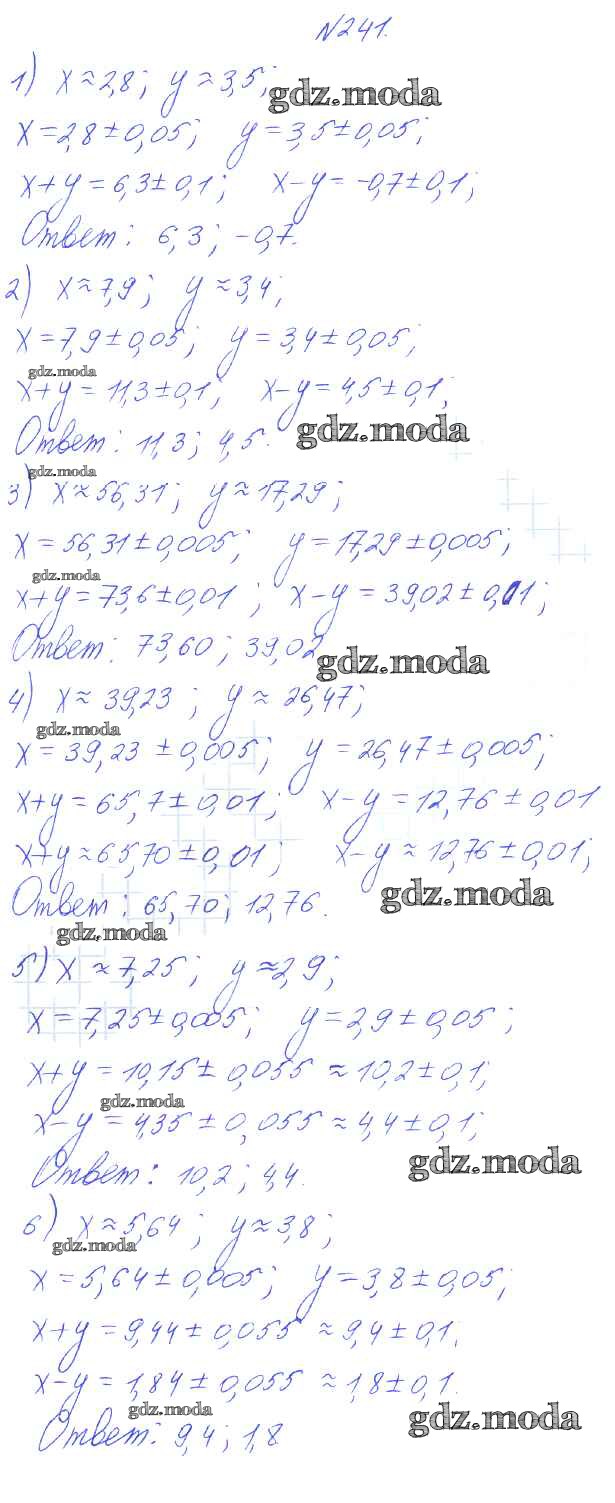 №241.
1) x≈2,8; y≈3,5;
gdz.moda
x=2,8±0,05; y=3,5±0,05;
x+y=6,3±0,1; x-y=-0,7±0,1;
Ответ: 6,3; -0,7.
2) x≈7,9; y≈3,4;
x=7,9±0,05; y=3,4±0,05;
gdz.moda
x+y=11,3±0,1; x-y=4,5±0,1;
Ответ: 11,3; 4,5.
gdz.moda
gdz.moda
3) x≈56,31; y≈17,29;
x=56,31±0,005; y=17,29±0,005;
gdz.moda
x+y=73,6±0,01; x-y=39,02±0,01;
Ответ: 73,60; 39,02
gdz.moda
4) x≈39,23; y≈26,47;
gdz.moda
x=39,23±0,005; y=26,47±0,005;
x+y=65,7±0,01; x-y=12,76±0,01
x+y≈65,70±0,01; x-y≈12,76±0,01;
Ответ: 65,70; 12,76.
gdz.moda
gdz.moda
5) x≈7,25; y≈2,9;
x=7,25±0,005; y=2,9±0,05;
x+y=10,15±0,055≈10,2±0,1;
gdz.moda
x-y=4,35±0,055≈4,4±0,1;
Ответ: 10,2; 4,4.
gdz.moda
6) x≈5,64; y≈3,8;
gdz.moda
x=5,64±0,005; y=3,8±0,05;
x+y=9,44±0,055≈9,4±0,1.
x-y=1,84±0,055≈1,8±0,1.
gdz.moda
Ответ: 9,4; 1,8
gdz.moda